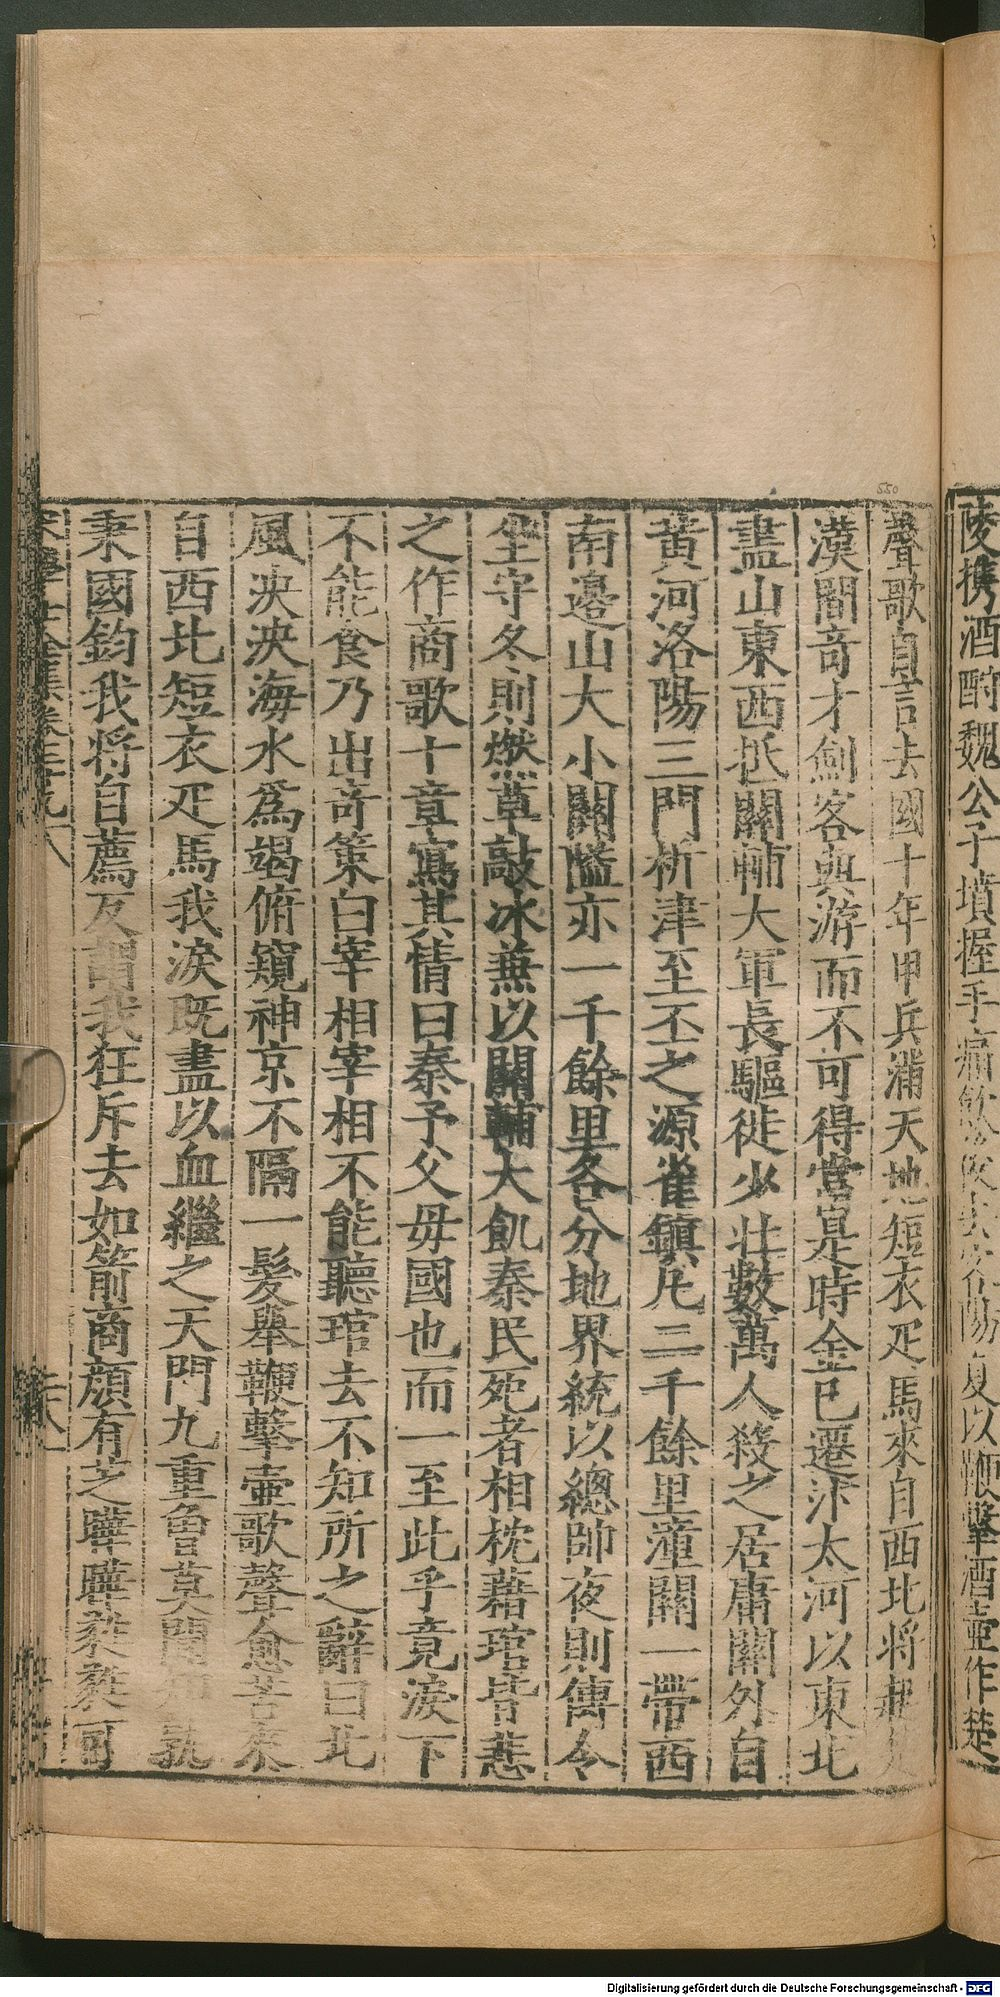 陵携酒酹魏公子墳握手痛飮
以鞭擊酒壷作楚
聲歌自言去國十年甲兵滿天地短衣疋馬來自西北將
漢間竒才劍客與游而不可得當是時金已遷汴太河以東北
盡山東西抵關輔大軍長驅徙少壮數萬人殺之居庸關外自
黄河洛陽三門析津至丕之源雀鎮凢二千餘里潼關一帶西
南邉山大小關隘亦一千餘里各分地界統以總帥夜則傳令
坐守冬則燃草敲冰兼以關輔大飢秦民死者相枕藉琯皆悲
之作商歌十章寫其情曰秦予父毋國也而一至此乎竟淚下
不能食乃出竒策白宰相宰相不能聽琯去不知所之辭曰北
風泱泱海水爲竭俯窺神京不隔一髪舉鞭擊壷歌聲愈苦來
自西北短衣疋馬我淚既盡以血繼之天門九重魯莫聞知孰
秉國鈞我將自薦反謂我狂斥去如箭商顔有芝曄曄
宋學士全集卷三十九
550
Digitalisierung gefördert durch die Deutsche Forschungsgemeinschaft - DFG